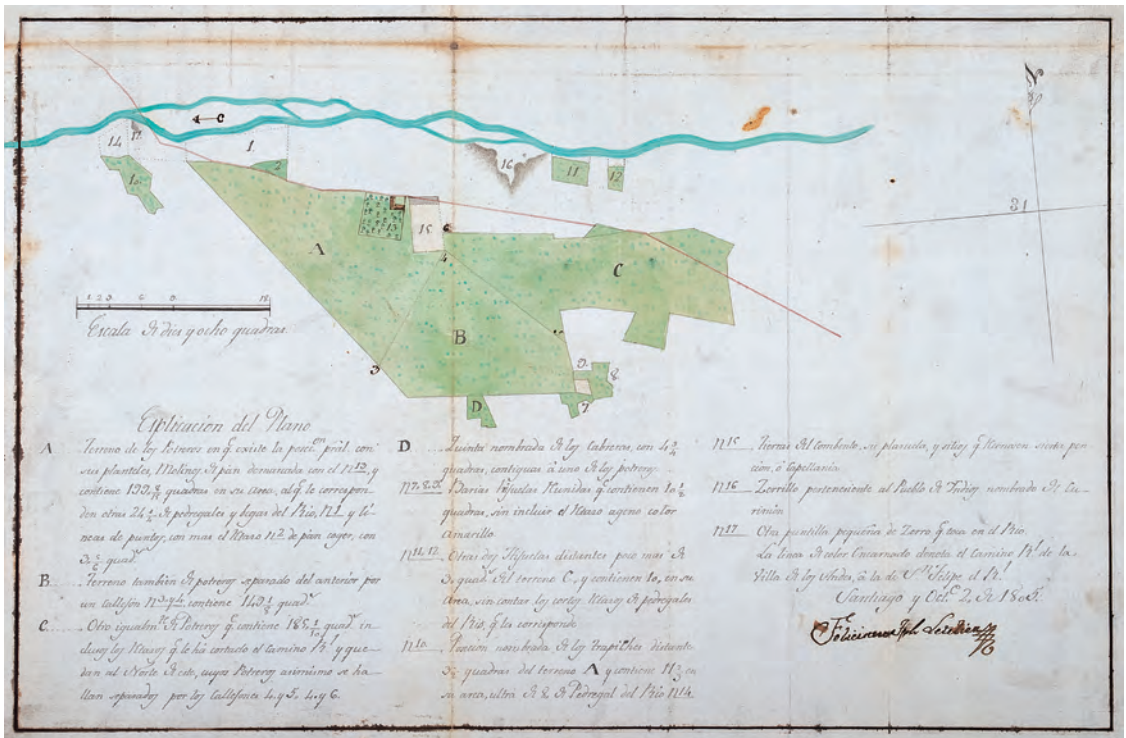 N
31
C
1.
2
14
17
10
16
11
12
13
15
6
4
A
B
C
D
3
9.
8
7
1 2 3 6 9 18
Escala de dies y ocho quadras.
Explicacion del Plano
A Terreno de los Potreros en q.e existe la poses.on pral. con
sus planteles, Molinos de pan demarcada con el n.13, y
contiene 199. quadras en su area, al q.e le correspon
den otras 24 de pedregales y begas del Rio, N1 y li-
neas de puntos, con mas el Retazo n.2 de pan coger, con
3. quad.s
B Terreno tambien de potreros separado del anterior por
un callejon n.3. y 4. contiene 149. quad.s
C Otro igualm.te de Potreros q.e contiene 185. quad.s in
clusos los Retazos q.e le há cortado el camino R.l y que-
dan al Norte de este, cuyos Potreros asimismo se ha-
llan separados por los Callejones 4. y 5. 4. y 6.
D Quinta nombrada de los Cabreras, con 4
quadras, contiguas â uno de los potreros.
N7.8.9. Barias Hijuelas Reunidas q.e contienen 10.
quadras, sin incluir el Retazo ageno color
amarillo.
N11.12. Otras dos Hijuelas distantes poco mas de
3. quad.s del terreno C, y contienen 10, en su
Area, sin contar los cortos Retazos de pedregales
del Rio, q.e la corresponde
N10. Porcion nombrada de los trapiches distante
3 quadras del terreno A y contiene 11 en
su area, ultra de 2 de Pedregal del Rio N14.
N15 Tierras del Combento, su plasuela, y sitios q.e Reconocen sierta pen-
cion, ô Capellania.
N16 Zerrillo perteneciente al Pueblo de Yndios nombrado de Cu-
rimon
N17 Otra puntilla pequeña de Zerro q.e toca en el Rio.
La linea de color Encarnado denota el Camino R.l de la
Villa de los Andes, â la de S.n Felipe el R.l
Santiago y Oct.e 2, de 1805.